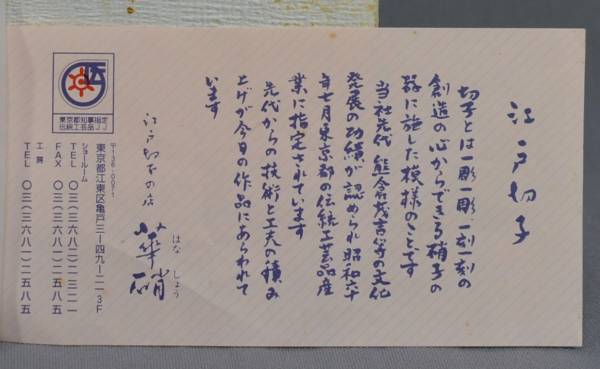 江戸切子
切子とは一彫一彫、一刻一刻の
創造の心からできる硝子の
器に施した模様のことです
当社先代 熊倉茂吉等の文化
発展の功績が認められ昭和六十
年七月東京都の伝統工芸品産
業に指定されています
先代からの技術と工夫の積み
上げが今日の作品にあらわれて
います
江戸切子の店
華硝
はな しょう
〒136-0071
東京都江東区亀戸三ー四九ー二一 3F
ショールーム
TEL 〇三(三六八二)二三二一
FAX 〇三(三六八一)二五八五
工房
TEL 〇三(三六八一)二五八五
東京都知事指定
伝統工芸品JJ